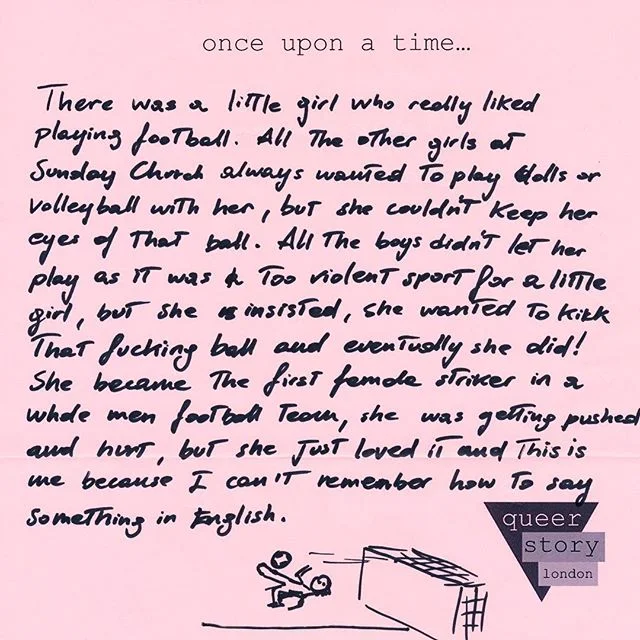 once upon a time...
There was a little girl who really liked
playing football. All the other girls at
Sunday Church always wanted to play dolls or
volleyball with her, but she couldn't keep her
eyes of that ball. All the boys didn't let her
play as it was too violent sport for a little
girl, but she insisted, she wanted to kikk
that fucking ball and eventually she did!
She became the first female striker in a
whole men football team, she was getting pushed
and hurt, but she just loved it and this is
me because I can't remember how to say
something in English.
queer
story
london